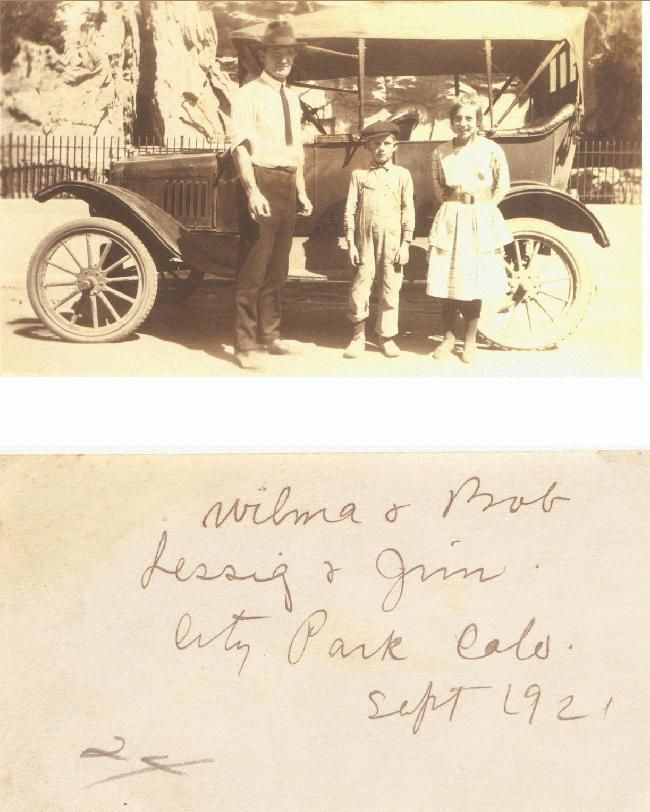 Wilma & Bob
Lessig & Jim.
City Park Colo.
Sept 1921
2x